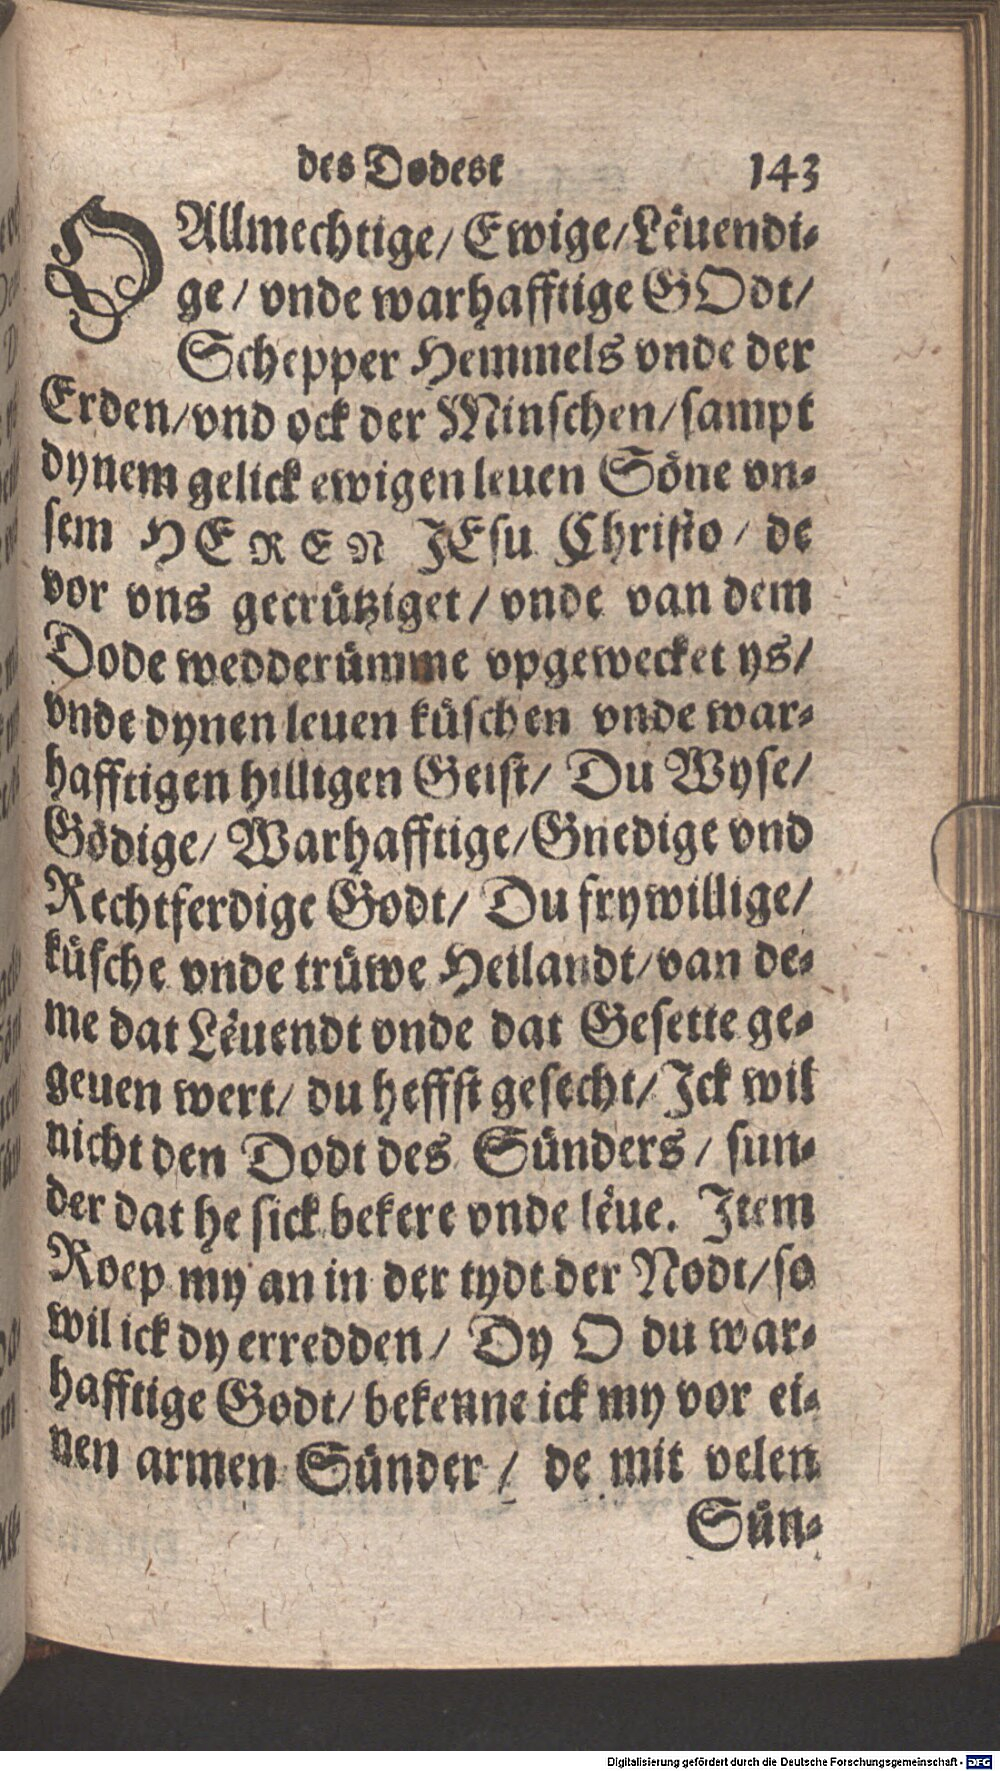 des Dodest 143
O Allmechtige/ Ewige/ Lëuendi-
ge/ vnde warhafftige GOdt/
Schepper Hemmels vnde der
Erden/ vnd ock der Minschen/ sampt
dynem gelick ewigen leuen Söne vn-
sem HEREN JEsu Christo/ de
vor vns gecrütziget/ vnde van dem
Dode wedderümme vpgewecket ys/
vnde dynen leuen küschen vnde war-
hafftigen hilligen Geist/ Du Wyse/
Gödige/ Warhafftige/ Gnedige vnd
Rechtferdige Godt/ Du frywillige/
küsche vnde trüwe Heilandt/ van de-
me dat Lëuendt vnde dat Gesette ge-
geuen wert/ du heffst gesecht/ Jck wil
nicht den Dodt des Sünders/ sun-
der dat he sick bekere vnde lëue. Jtem
Roep my an in der tydt der Nodt/ so
wil ick dy erredden/ Dy O du war-
hafftige Godt/ bekenne ick my vor ei-
nen armen Sünder/ de mit velen
Sün-
Digitalisierung gefördert durch die Deutsche Forschungsgemeinschaft - DFG